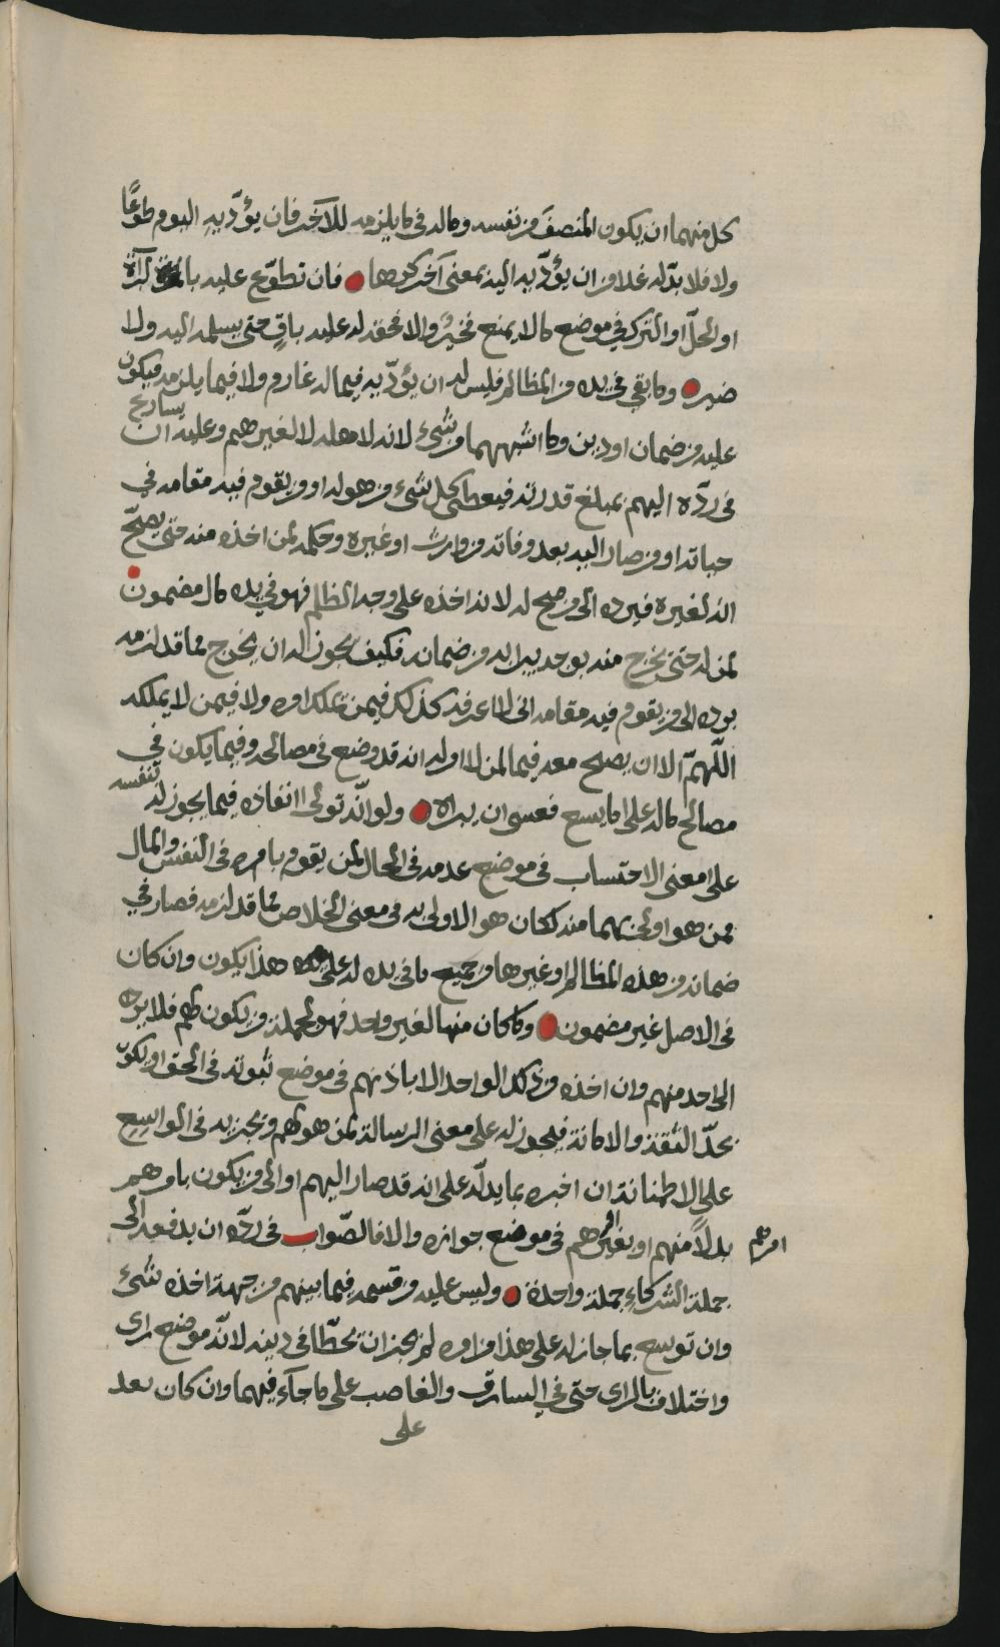 كل منهما ان يكون المنصف من نفسه وماله في ما يلزمه للآخر فان يؤدّيه اليوم طوعًا
ولا فلا بدّ له غدا من ان يؤدّيه اليه بمعنى آخر كرها فان تطوّع عليه بالبرآة
او الحلّ او الترك في موضع ما لا يمنع فخير والا فحقه له عليه باقٍ حتى يسلمه اليه ولا
ضير وما بقي في يده من المظالم فليس له ان يؤدّيه فيما له غارم ولا فيما يلزمه فيكون
عليه من ضمان او دين وما اشبههما من شيء لانه لاهله لا لغيرهم وعليه ان يسارع
في ردّه اليهم بمبلغ قدرته فيعطى كل شيء من هو له او من يقوم فيه مقامه في
حياته او من صار اليه بعد وفاته من وارث او غيره وحكمه لمن اخذه منه حتى يصحّ
انه لغيره فيرده الى من صح له لانه اخذه على وجه الظلم فهو في يده مال مضمون
لمن له حتى يخرج منه بوجه يبرا له من ضمانه فكيف يجوز له ان يخرج مما قد لزمه
برده الى من يقوم فيه مقامه اني لا اعرفه كذلك فيمن يملك امره ولا فيمن لا يملكه
اللّهمّ الا ان يصح معه فيما لمن لا امر له انه قد وضع في مصالحه وفيما يكون في
مصالح ماله على ما يسع فعسى ان يبراه ولو انّه تولى انفاذه فيما يجوز له لنفسه
على معنى الاحتساب في موضع عدمه في الحال لمن يقوم بامره في النفس والمال
ممن هو اولى بهما منه لكان هو الاولى به في معنى الخلاص مما قد لزمه فصار في
ضمانه من هذه المظالم او غيرها من جميع ما في يده له على هذا يكون وان كان
في الاصل غير مضمون وما كان منها لغير واحد فهو لجملة من يكون لهم فلا يرده
الى احد منهم وان اخذه من ذلك الواحد الا باذنهم في موضع ثبوته في الحق او يكون
بحدّ الثقة والامانة فيجوز له على معنى الرسالة لمن هو لهم ويجزيه في الواسع
على الاطمئنانة ان اخبره بما يدلّه على انه قد صار اليهم او الى من يكون بامرهم
بدلاً منهم او بغير امرهم في موضع جوازه والا فالصّواب في ردّه ان يدفعه الى
جملة الشركاء جملة واحدة وليس عليه من قسمه فيما بينهم من جهة اخذه شيء
وان توسع بما جاز له على هذا من امره لم يجز ان يخطّا في دينه لانّه موضع راى
واختلاف بالراى حتى في السارق والغاصب على ما جآء فيهما وان كان بعد
على